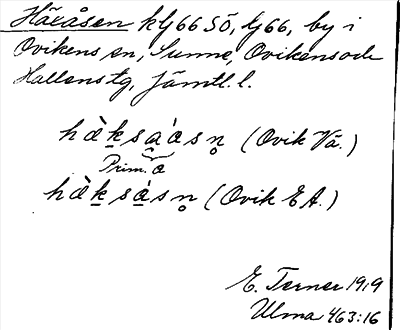 Häxåsen kbg 66 SÖ, bg 66, by i
Ovikens sn, Sunne, Ovikens och
Hallens tg, Jämtl. l.
hàksa̰àsn̥ (Ovik Vä.)
Prim. a
hàksàsn̥ (Ovik E A.)
E. Terner 1919
Ulma 463:16